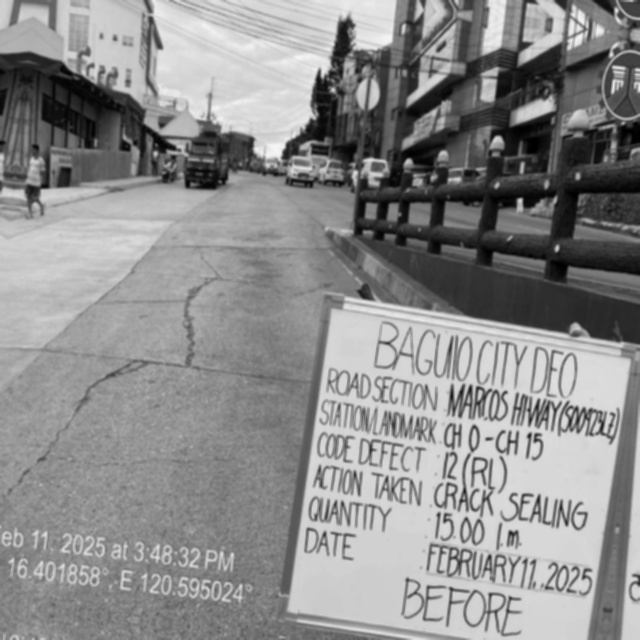 BAGUIO CITY DEO
ROAD SECTION : MARCOS HIWAY (S00923LZ)
STATION/LANDMARK : CH 0 - CH 15
CODE DEFECT : 12 (RL)
ACTION TAKEN : CRACK SEALING
QUANTITY : 15.00 l.m.
DATE : FEBRUARY 11, 2025
BEFORE
eb 11, 2025 at 3:48:32 PM
16.401858°, E 120.595024°